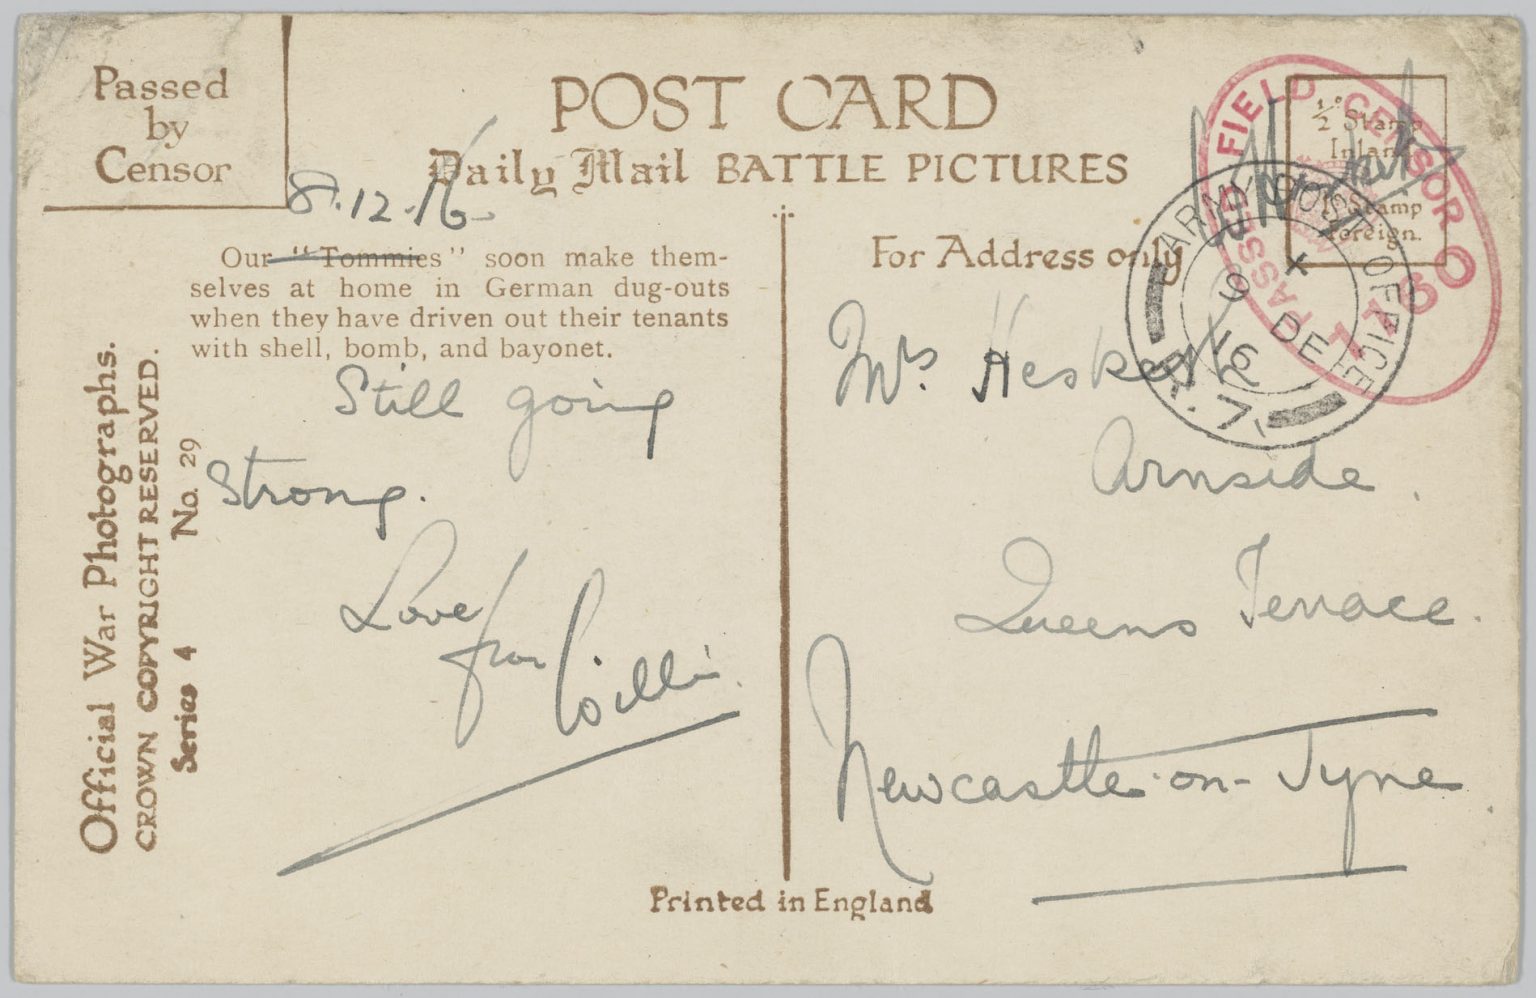 Passed
by
Censor
POST CARD
Daily Mail BATTLE PICTURES
8.12.16
Our "Tommies" soon make them-
selves at home in German dug-outs
when they have driven out their tenants
with shell, bomb, and bayonet.
Still going
Strong.
Love
from Willie.
Official War Photographs.
CROWN COPYRIGHT RESERVED.
Series 4 No. 29
½ᴰ Stamp
Inland
1ᴰ Stamp
Foreign.
PASSED FIELD CENSOR
1460
ARMY POST OFFICE
X
9 DE
16
R.7.
For Address only
Mrs. Hesketh
Arnside.
Queens Terrace.
Newcastle-on-Tyne
Printed in England